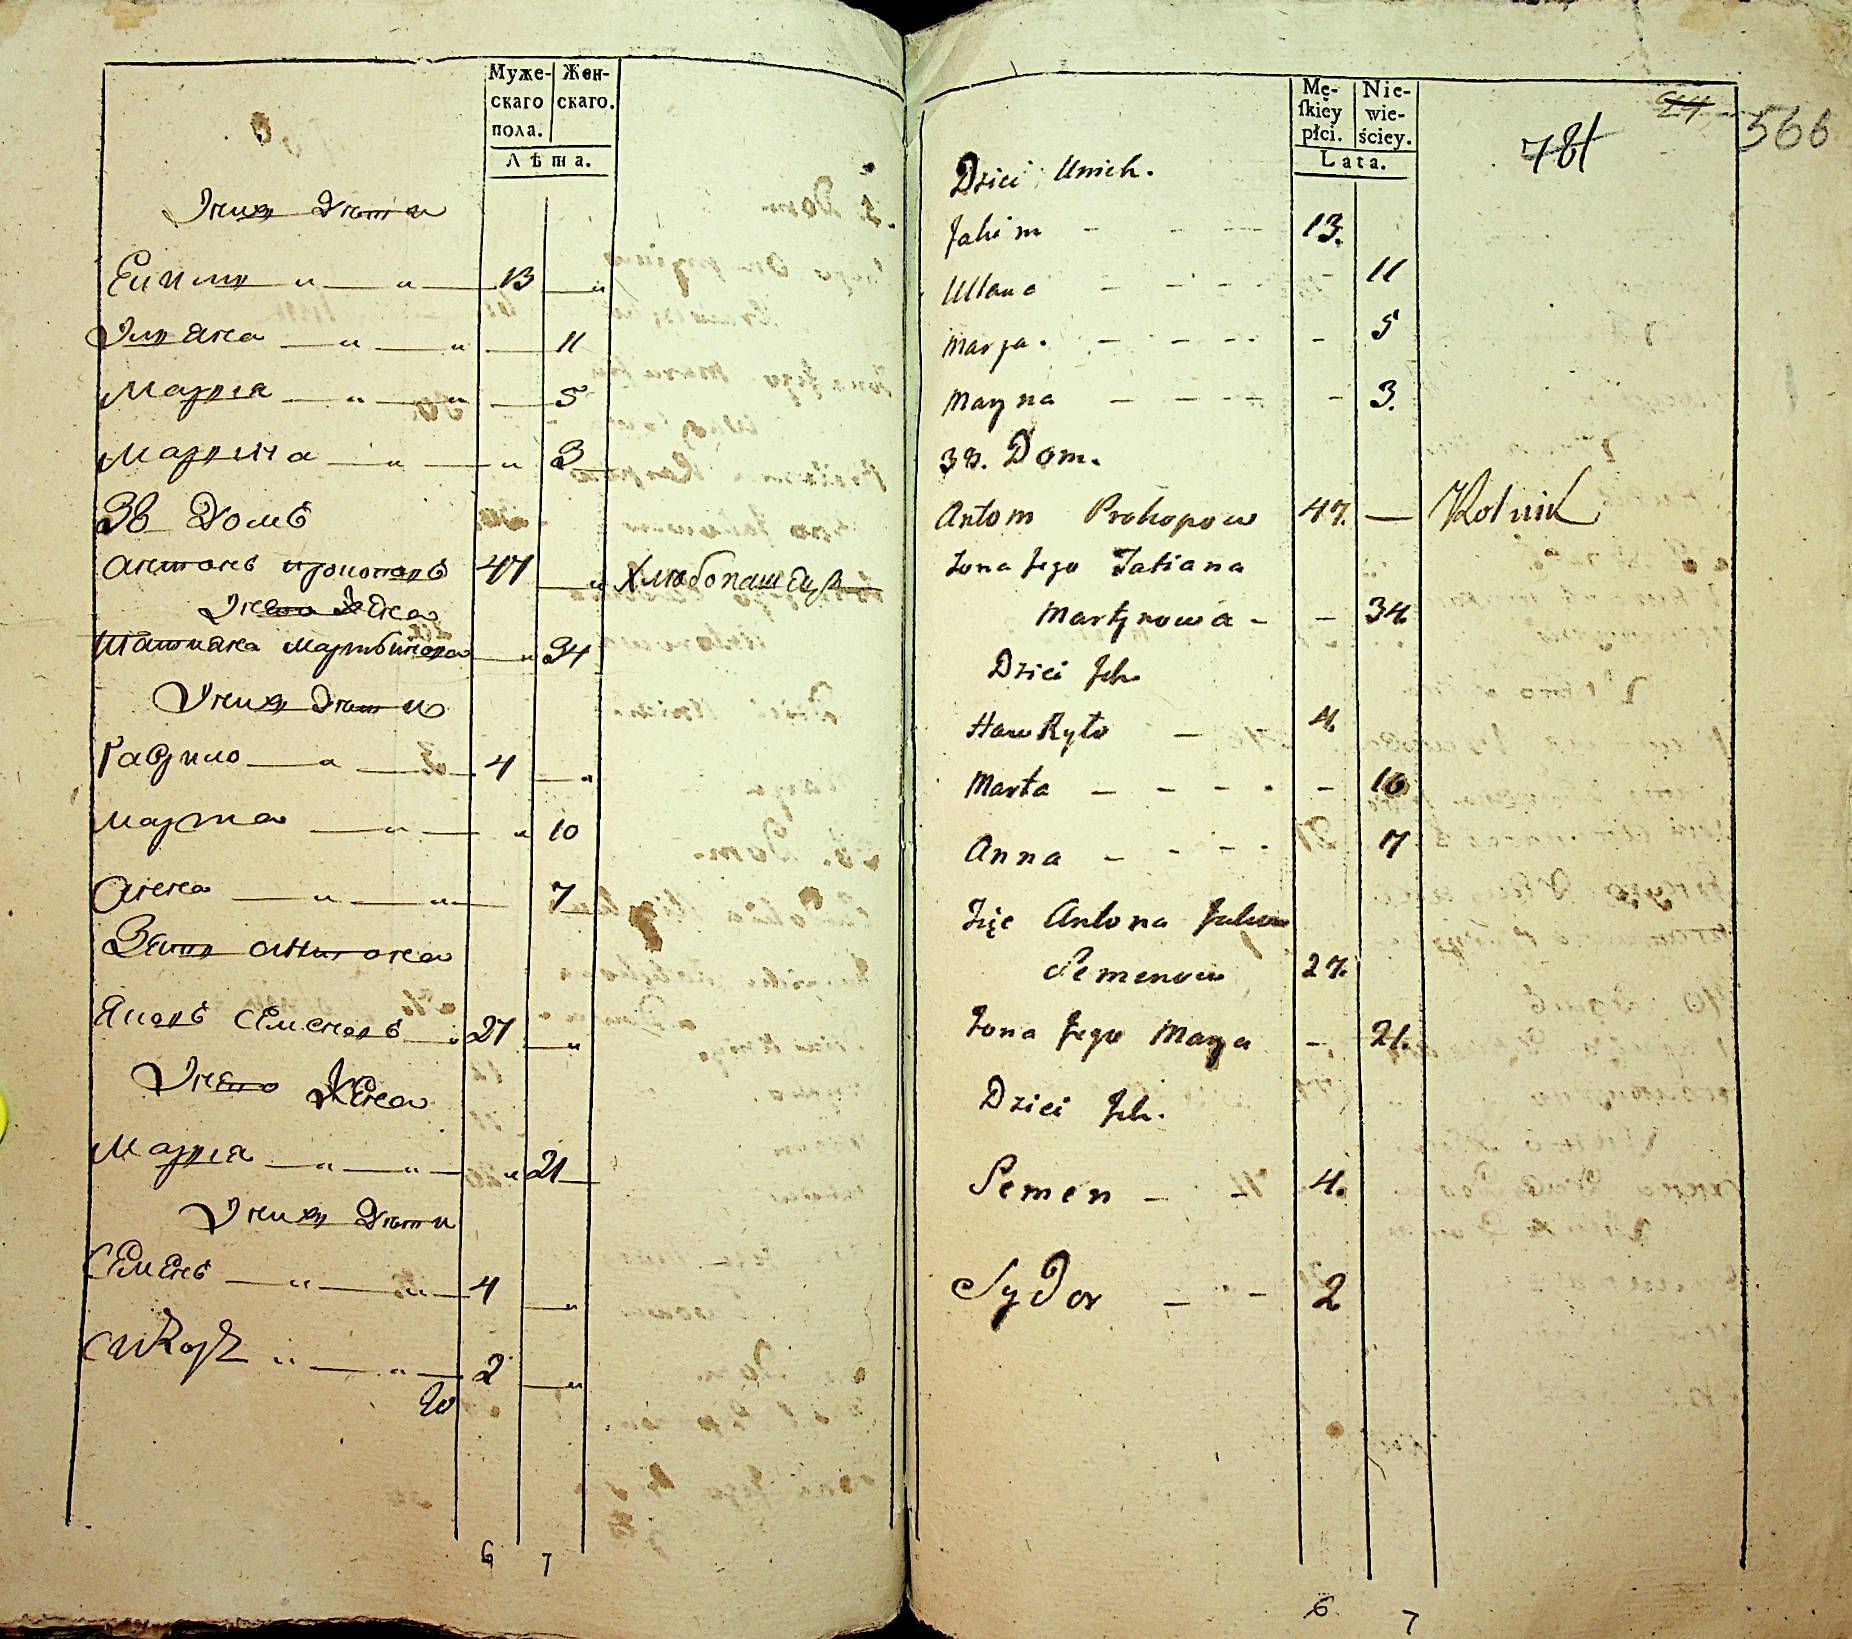 Муже-
скаго
пола.
Жен-
скаго.
Лѣта.
У нихъ дѣти
Екимъ 13
Уляна 11
Марія 5
Марина 3
38 Домъ
Антонъ Прокоповъ 47 Хлѣбопашецъ
У него жена
Татіяна Мартынова 34
У нихъ дѣти
Гаврило 4
Марта 10
Анна 7
Зять Антона
Яковъ Семеновъ 27
У него жена
Марія 21
У нихъ дѣти
Семенъ 4
Сидоръ 2
6 7
Mę-
ſkiéy
płci.
Nie-
wie-
ściey.
Lata.
781
566
Dzieci Unich.
Jakim 13.
Ullana 11
Marya. 5
Maryna 3.
38. Dom.
Anton Prokopow 47. — Rolnik
Zona Jego Tatiana
Martynowa - - 34
Dzieci Ich
Hawryło — 4.
Marta - 10
Anna 7
Zięc Antona Jakow
Semenow 27.
Zona Jego Marya - 21.
Dzieci Ich.
Semen - 4.
Sydor - - 2
6 7